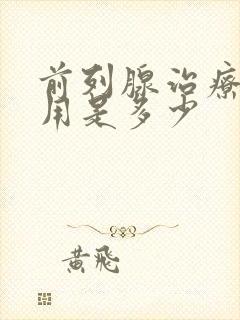 前列腺治療
用是多少
黄飛